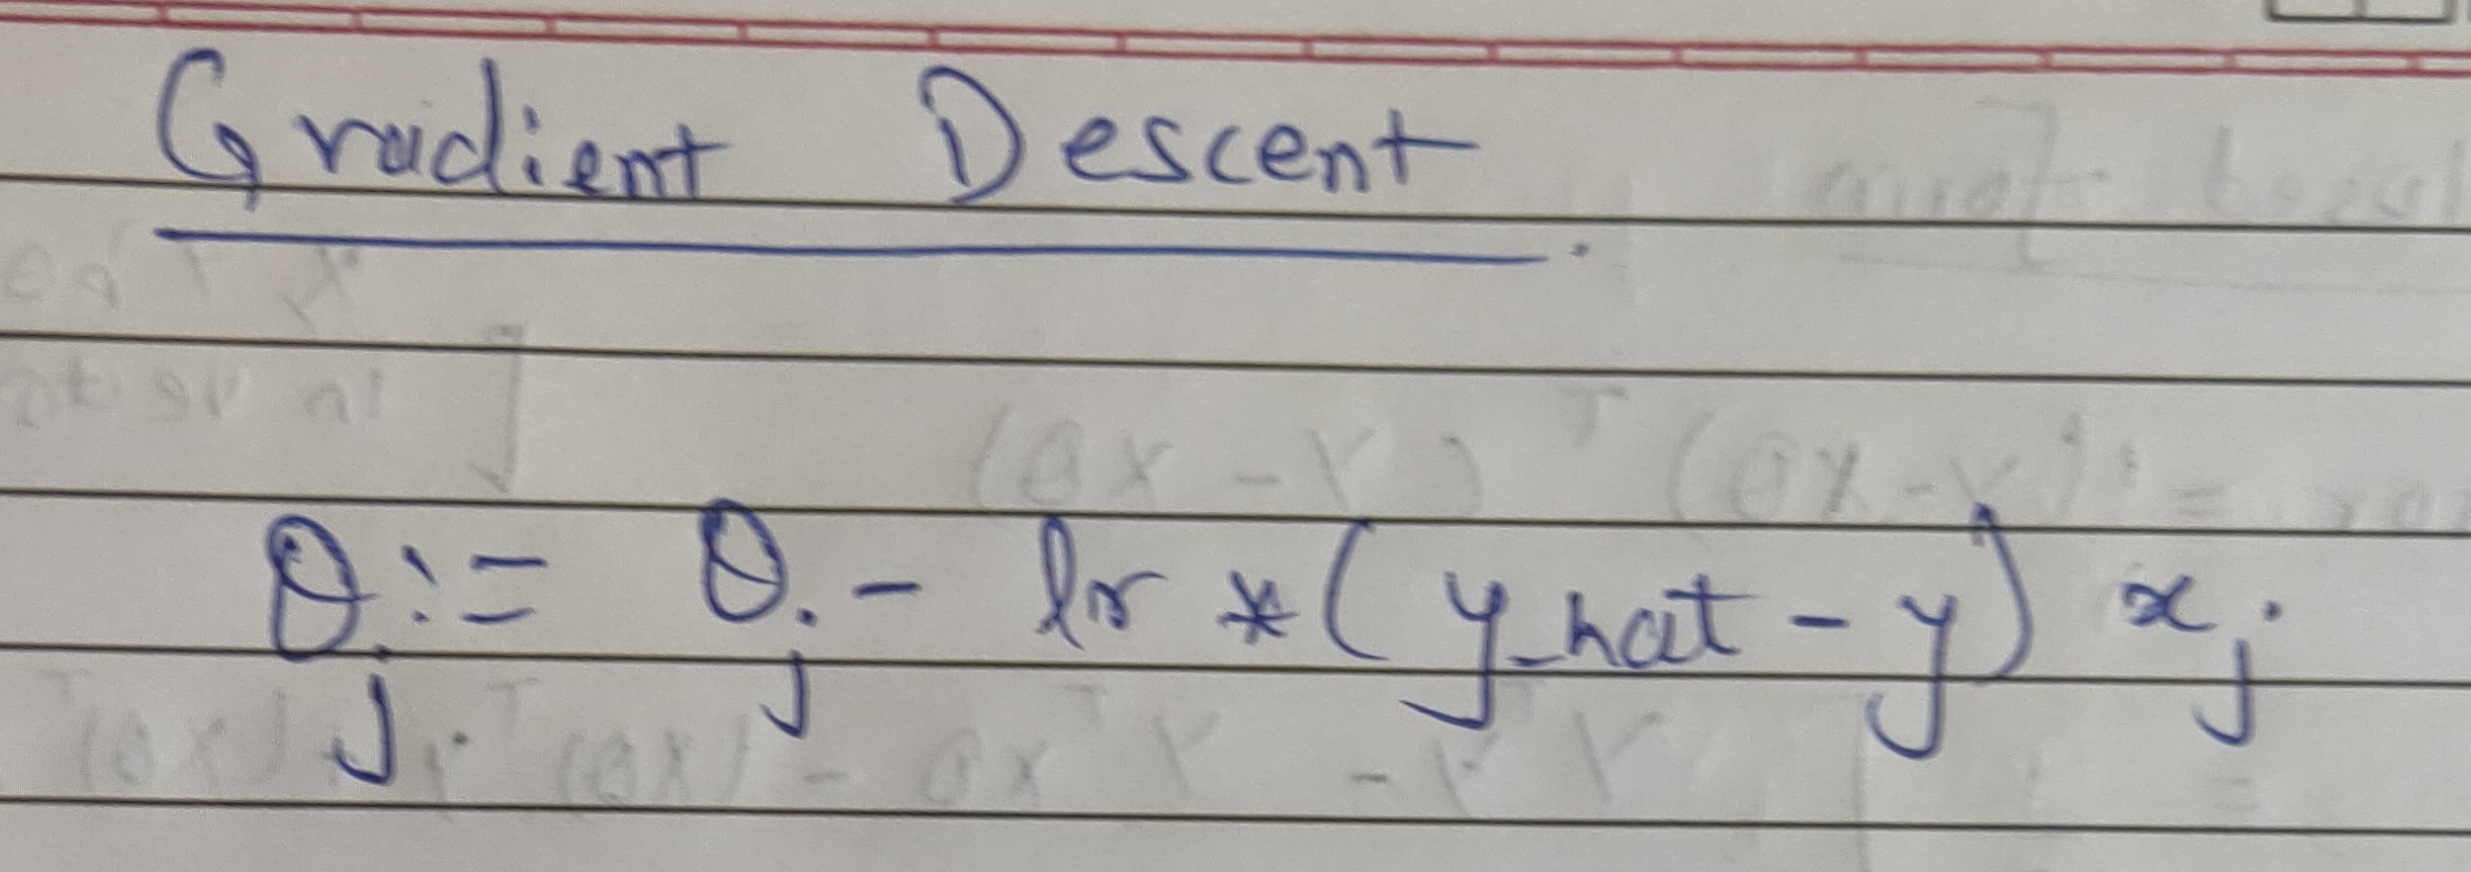 Gradient Descent
θj := θj - lr * (y_hat - y) xj